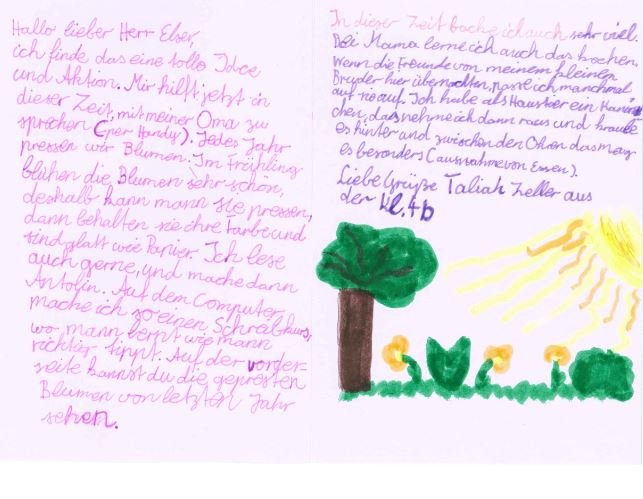 Hallo lieber Herr Elser,
ich finde das eine tolle Idee
und Aktion. Mir hilft jetzt in
dieser Zeit, mit meiner Oma zu
sprechen (per Handy). Jedes Jahr
pressen wir Blumen. Im Frühling
blühen die Blumen sehr schön,
deshalb kann mann sie pressen,
dann behalten sie ihre Farbe und
sind glatt wie Papier. Ich lese
auch gerne, und mache dann
Antolin. Auf dem Computer
mache ich so einen Schreibkurs,
wo mann lernt wie mann
richtig tippt. Auf der vorder-
seite kannst du die gepresten
Blumen von letzten Jahr
sehen.
In dieser Zeit backe ich auch sehr viel.
Bei Mama lerne ich auch das kochen.
Wenn die Freunde von meinem kleinen
Bruder hier übernachten, passe ich manchmal
auf sie auf. Ich habe als Haustier ein
chen, das nehme ich dann raus und kraule
es hinter und zwischen den Ohren das mag
es besonders (ausnahme von Essen).
Liebe Grüße Taliah Zeller aus
der Kl. 4b